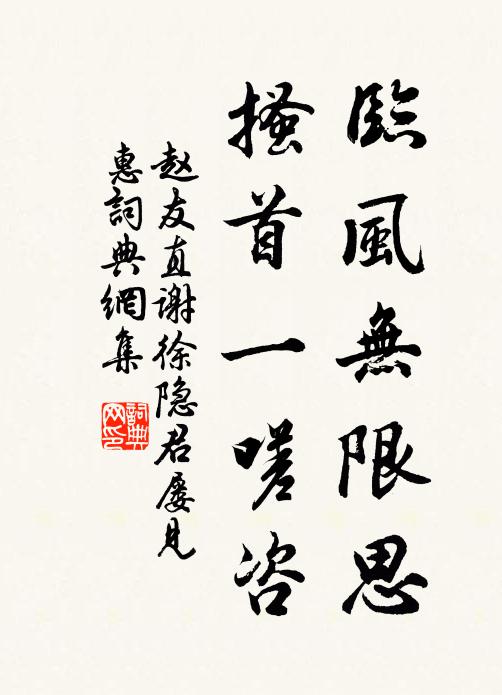 臨風無限思
搔首一嗟咨
赵友直谢徐隐君屡见
惠詞典網集
詞典
网印